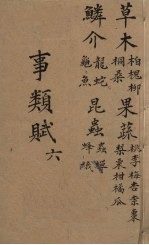 草木 柏槐柳
桐桑
果蔬 桃李梅杏柰棗
梨栗柑橘瓜
鱗介 龍蛇
龜魚
昆蟲 蟲
蜂蟻
事類賦 六